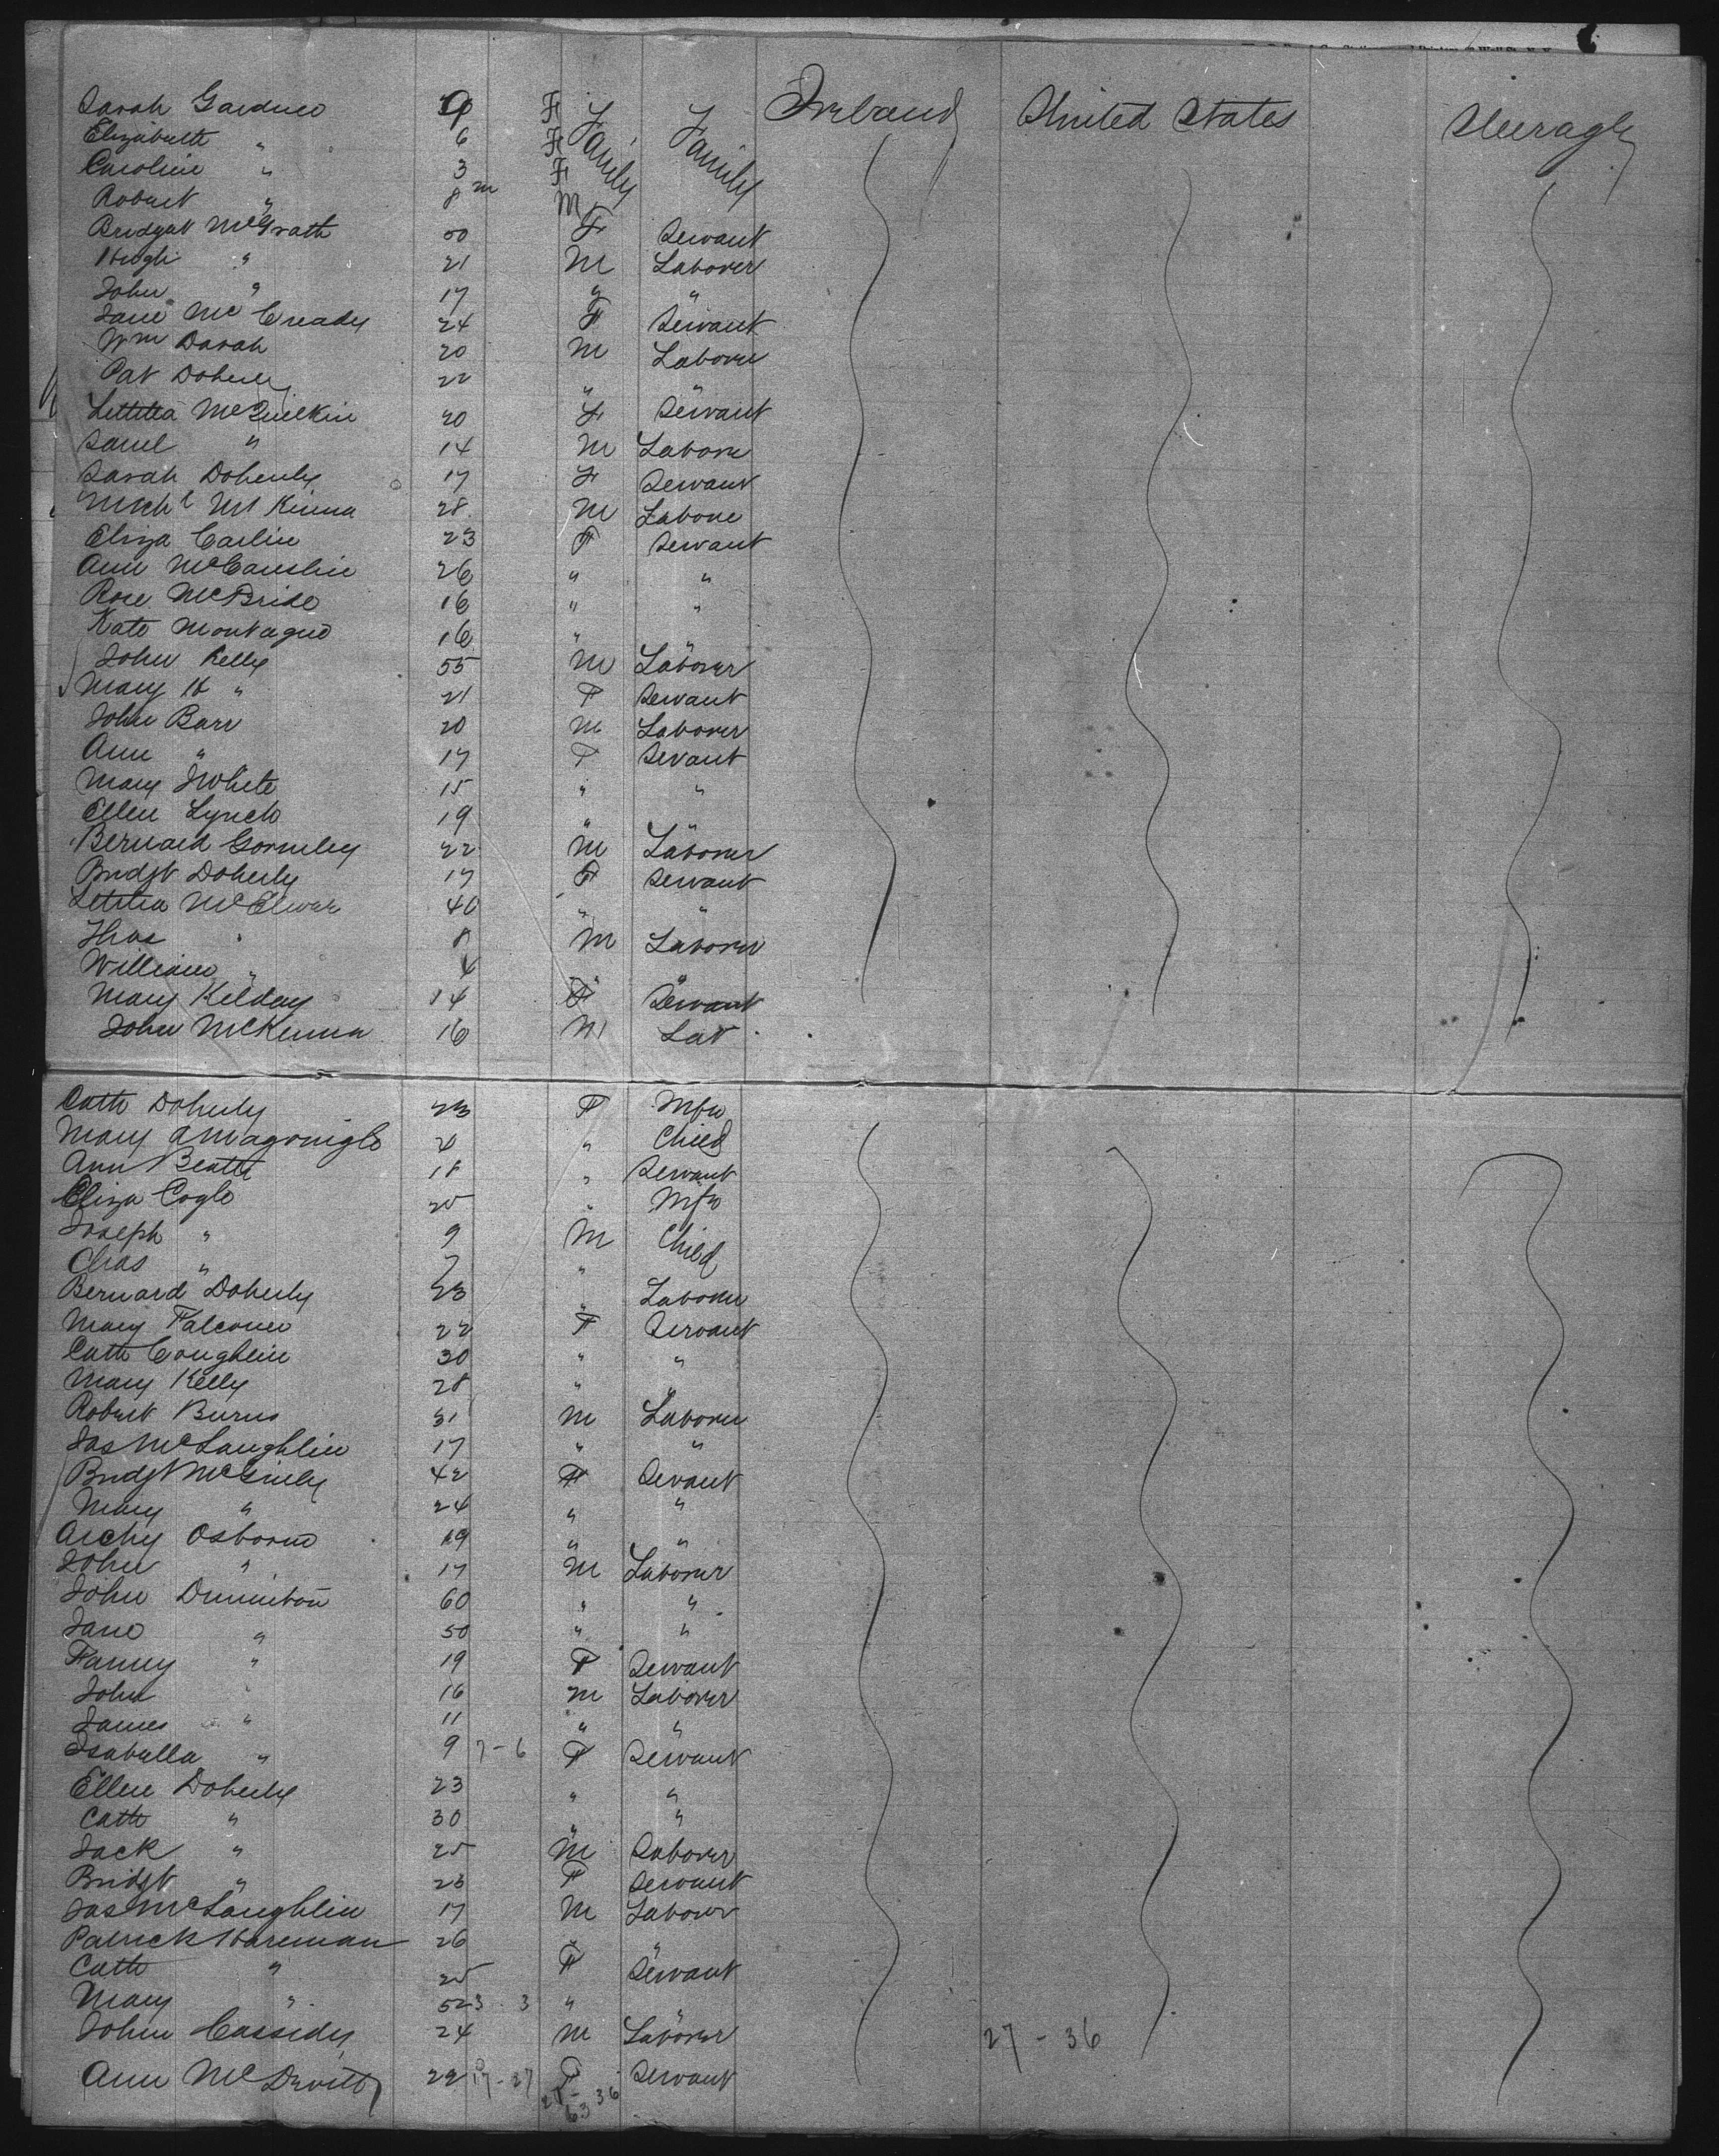 Sarah Gardner 9 F Family Family Ireland United States Steerage
Elizabeth " 6 F
Caroline " 3 F
Robert " 8 m M
Bridget McGrath 50 F Servant
Hugh " 21 M Laborer
John " 17 " "
Jane McCready 24 F Servant
Wm Darah 20 M Laborer
Pat Doherty 22 " "
Letitia McQuilkin 20 F Servant
Saml " 14 M Laborer
Sarah Doherty 17 F Servant
Michl McKenna 28 M Laborer
Eliza Carlin 23 F Servant
Ann McCauslin 26 " "
Rose McBride 16 " "
Kate Montague 16 " "
John Kelly 55 M Laborer
Mary H " 21 F Servant
John Barr 20 M Laborer
Ann " 17 F Servant
Mary J White 15 " "
Ellen Lynch 19 " "
Bernard Gormley 22 M Laborer
Bridgt Doherty 17 F Servant
Letitia 40 " "
Thos " 8 M Laborer
William " 4 " "
Mary Kilday 14 F Servant
John McKenna 16 M Lab
Cath Doherty 23 F Wife
Mary A Magonigle 2 " Child
Ann Beatte 18 " Servant
Eliza Cogle 25 " Wife
Joseph " 9 M Child
Chas " 7 "
Bernard Doherty 23 " Laborer
Mary Falconer 22 F Servant
Cath Coughlin 30 " "
Mary Kelly 28 " "
Robert Burns 31 M Laborer
Jas McLaughlin 17 " "
Bridgt McGinly 42 F Servant
Mary " 24 " "
Archy Osborne 19 " "
John " 17 M Laborer
John 60 " "
Jane " 50 " "
Fanny " 19 F Servant
John " 16 M Laborer
James " 11 " "
Isabella " 9 7-6 F Servant
Ellen Doherty 23 " "
Cath " 30 " "
Jack " 25 M Laborer
Bridgt " 23 F Servant
Jas McLaughlin 17 M Laborer
Patrick Hareman 26 " "
Cath " 25 F Servant
Mary " 52 3 3 " "
John Cassidy 24 M Laborer 27 - 36
Ann McDevitt 22 17-27 F Servant
36
63